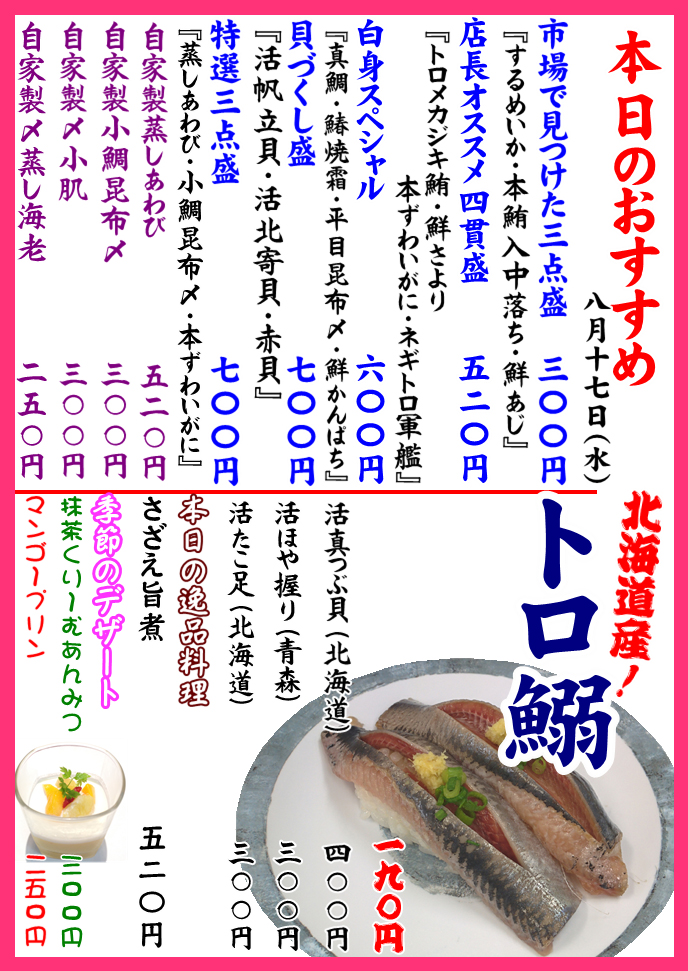 本日のおすすめ
八月十七日(水)
市場で見つけた三点盛 三〇〇円
『するめいか・本鮪入中落ち・鮮あじ』
店長オススメ四貫盛 五二〇円
『トロメカジキ鮪・鮮さより
本ずわいがに・ネギトロ軍艦』
白身スペシャル 六〇〇円
『真鯛・鰆焼霜・平目昆布〆・鮮かんぱち』
貝づくし盛 七〇〇円
『活帆立貝・活北寄貝・赤貝』
特選三点盛 七〇〇円
『蒸しあわび・小鯛昆布〆・本ずわいがに』
自家製蒸しあわび 五二〇円
自家製小鯛昆布〆 三〇〇円
自家製〆小肌 三〇〇円
自家製〆蒸し海老 二五〇円
北海道産!
トロ鰯
一九〇円
活真つぶ貝(北海道) 四〇〇円
活ほや握り(青森) 三〇〇円
活たこ足(北海道) 三〇〇円
本日の逸品料理
さざえ旨煮 五二〇円
季節のデザート
抹茶くりーむあんみつ 三〇〇円
マンゴープリン 二五〇円